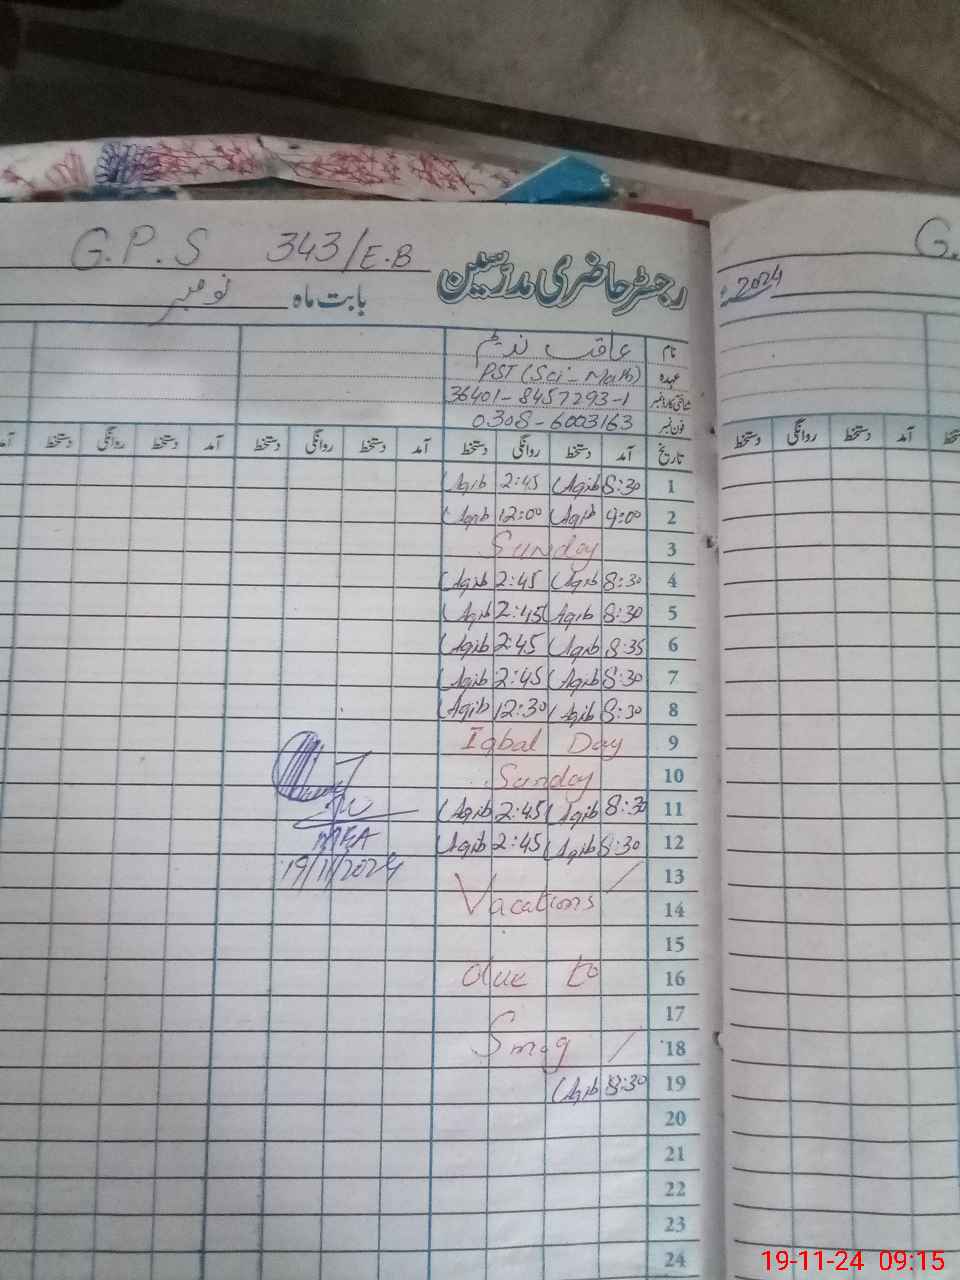 G.P.S 343/E.B
رجسٹر حاضری مدرسین
بابت ماہ نومبر
2024
G.
نام عاقب ندیم
عہدہ PST (Sci-Math)
شناختی کارڈ نمبر 36401-8457293-1
فون نمبر 0308-6003163
تاریخ آمد دستخط روانگی دستخط آمد دستخط روانگی دستخط آمد دستخط روانگی دستخط آمد
دستخط آمد دستخط روانگی دستخط
1 8:30 Aqib 2:45 Aqib
2 9:00 Aqib 12:00 Aqib
3 Sunday
4 8:30 Aqib 2:45 Aqib
5 8:30 Aqib 2:45 Aqib
6 8:35 Aqib 2:45 Aqib
7 8:30 Aqib 2:45 Aqib
8 8:30 Aqib 12:30 Aqib
9 Iqbal Day
10 Sunday
11 8:30 Aqib 2:45 Aqib
12 8:30 Aqib 2:45 Aqib
13
14 Vacations
15
16 due to
17
18 Smog
19 8:30 Aqib
20
21
22
23
24
MEA
19/11/2024
19-11-24 09:15